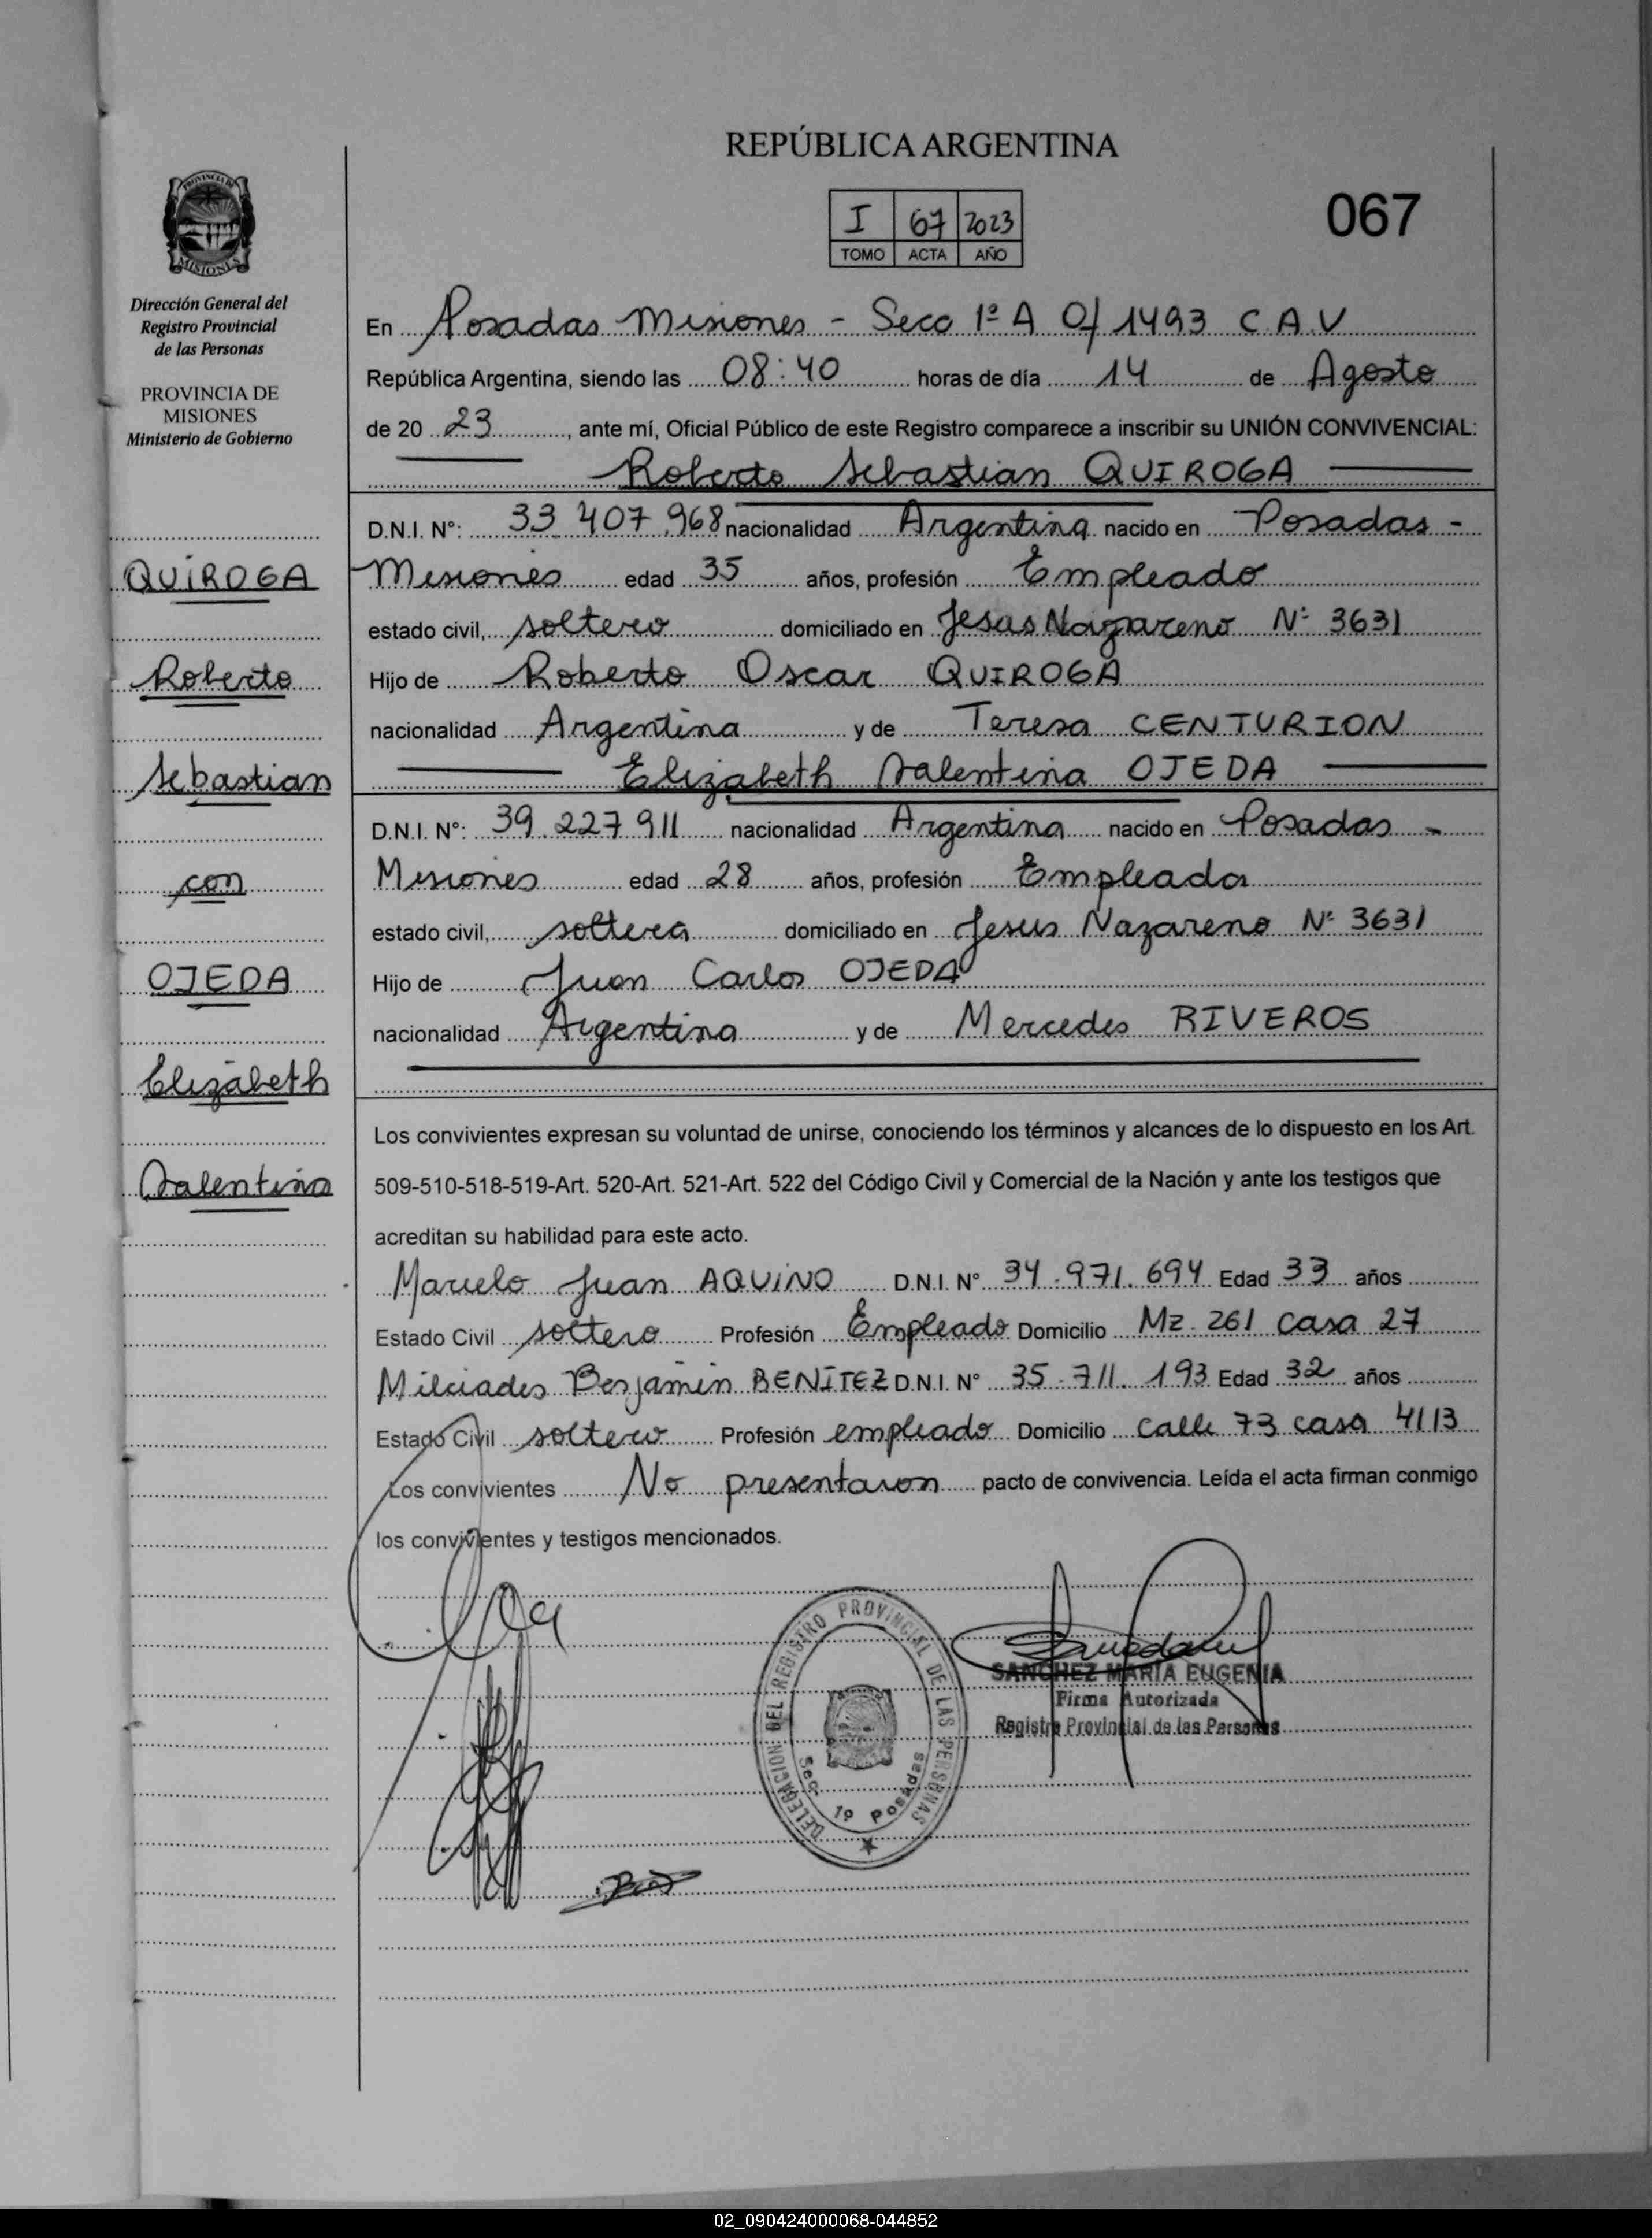 REPÚBLICA ARGENTINA
I 67 2023
TOMO ACTA AÑO
067
PROVINCIA DE
MISIONES
Dirección General del
Registro Provincial
de las Personas
PROVINCIA DE
MISIONES
Ministerio de Gobierno
QUIROGA
Roberto
Sebastian
con
OJEDA
Elizabeth
Valentina
En Posadas Misiones - Secc 1ª A O/ 1493 C.A.V
República Argentina, siendo las 08:40 horas de día 14 de Agosto
de 20 23, ante mí, Oficial Público de este Registro comparece a inscribir su UNIÓN CONVIVENCIAL:
Roberto Sebastian QUIROGA
D.N.I. Nº: 33.407.968 nacionalidad Argentina nacido en Posadas -
Misiones edad 35 años, profesión Empleado
estado civil, soltero domiciliado en Jesus Nazareno Nº 3631
Hijo de Roberto Oscar QUIROGA
nacionalidad Argentina y de Teresa CENTURION
Elizabeth Valentina OJEDA
D.N.I. Nº: 39.227.911 nacionalidad Argentina nacido en Posadas -
Misiones edad 28 años, profesión Empleada
estado civil, soltera domiciliado en Jesus Nazareno Nº 3631
Hijo de Juan Carlos OJEDA
nacionalidad Argentina y de Mercedes RIVEROS
Los convivientes expresan su voluntad de unirse, conociendo los términos y alcances de lo dispuesto en los Art.
509-510-518-519-Art. 520-Art. 521-Art. 522 del Código Civil y Comercial de la Nación y ante los testigos que
acreditan su habilidad para este acto.
Marcelo Juan AQUINO D.N.I. Nº 34.971.694 Edad 33 años
Estado Civil soltero Profesión Empleado Domicilio Mz. 261 Casa 27
Milciades Benjamin BENÍTEZ D.N.I. Nº 35.711.193 Edad 32 años
Estado Civil soltero Profesión empleado Domicilio calle 73 casa 4113
Los convivientes No presentaron pacto de convivencia. Leída el acta firman conmigo
los convivientes y testigos mencionados.
DELEGACION DEL REGISTRO PROVINCIAL DE LAS PERSONAS
Sec. 1º Posadas
SANCHEZ MARÍA EUGENIA
Firma Autorizada
Registro Provincial de las Personas
02_090424000068-044852